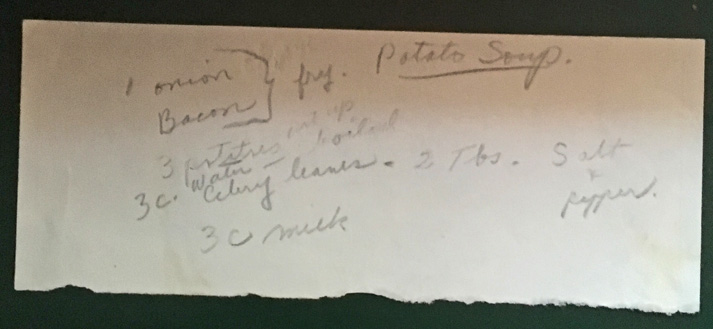 Potato Soup.
1 onion } fry.
Bacon
3 potatoes cut up.
Water - boiled
3 c. Celery leaves - 2 Tbs. Salt
& pepper.
3 c milk